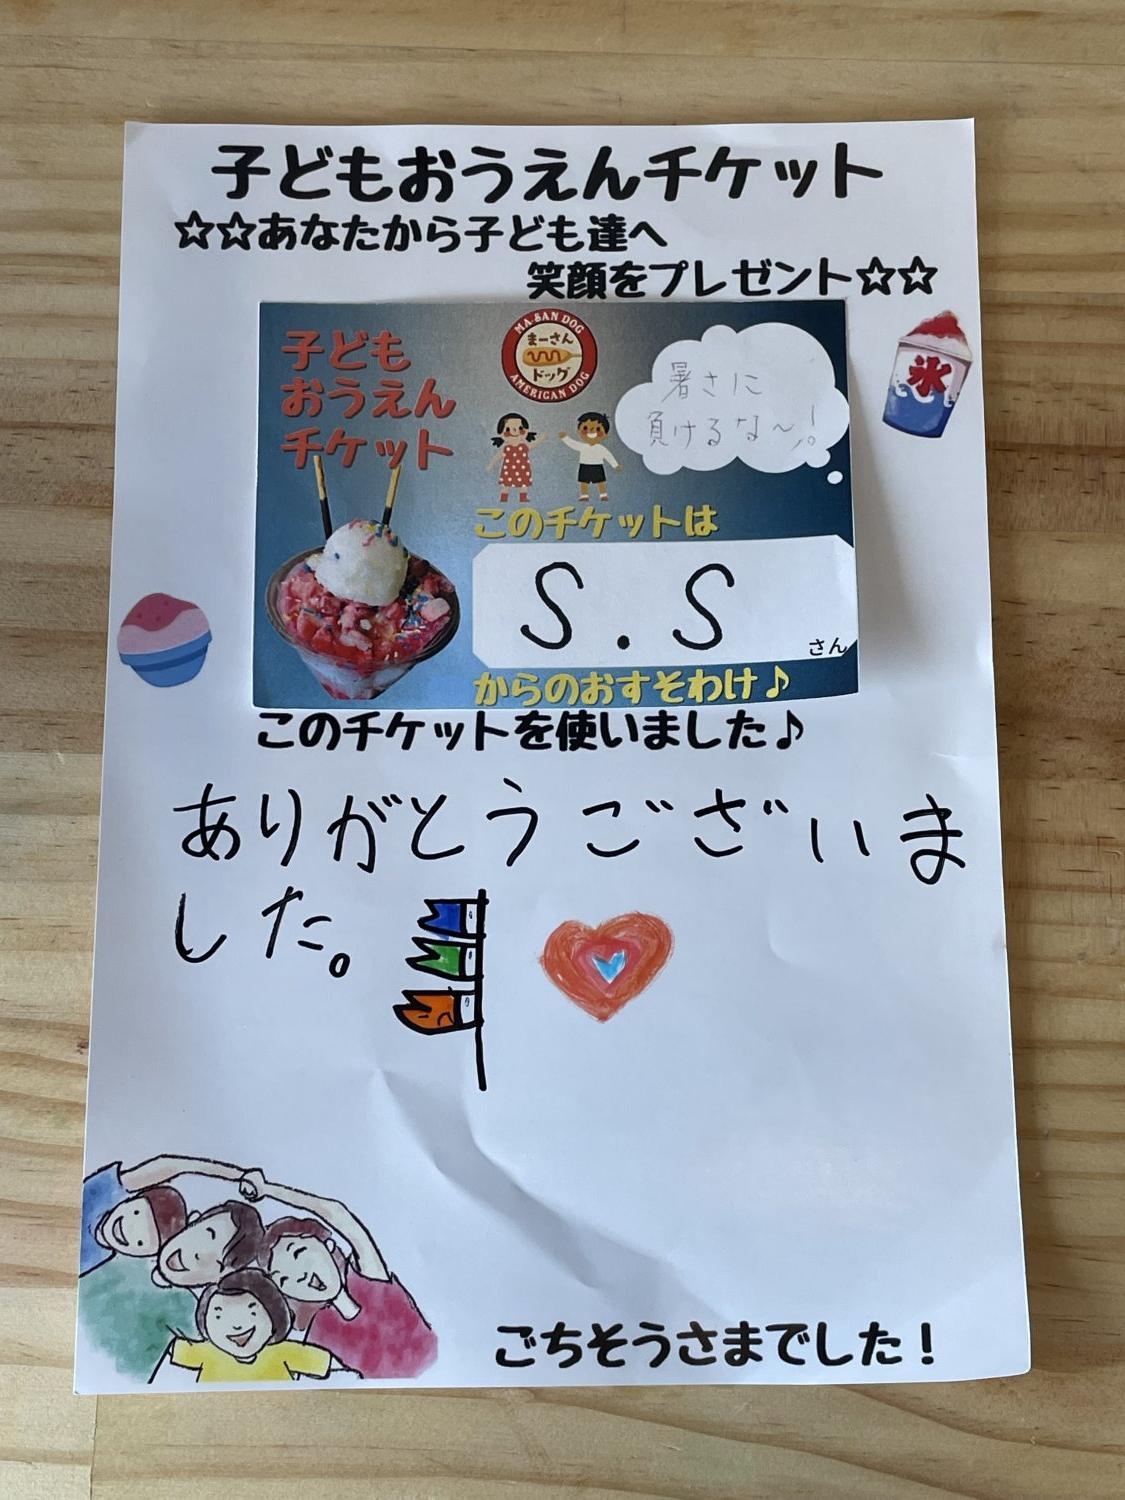 子どもおうえんチケット
☆☆あなたから子ども達へ
笑顔をプレゼント☆☆
子ども
おうえん
チケット
MA.SAN DOG
まーさん
ドッグ
AMERICAN DOG
暑さに
負けるな〜!。
氷
このチケットは
S.S
さん
からのおすそわけ♪
このチケットを使いました♪
ありがとうございま
した。
ごちそうさまでした！